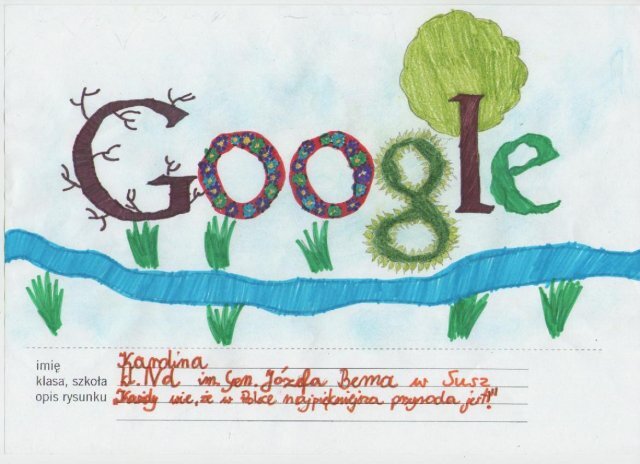 Google
imię Karolina
klasa, szkoła kl. IVd im. Gen. Józefa Bema w Susz
opis rysunku „Każdy wie, że w Polsce najpiękniejsza przyroda jest!"